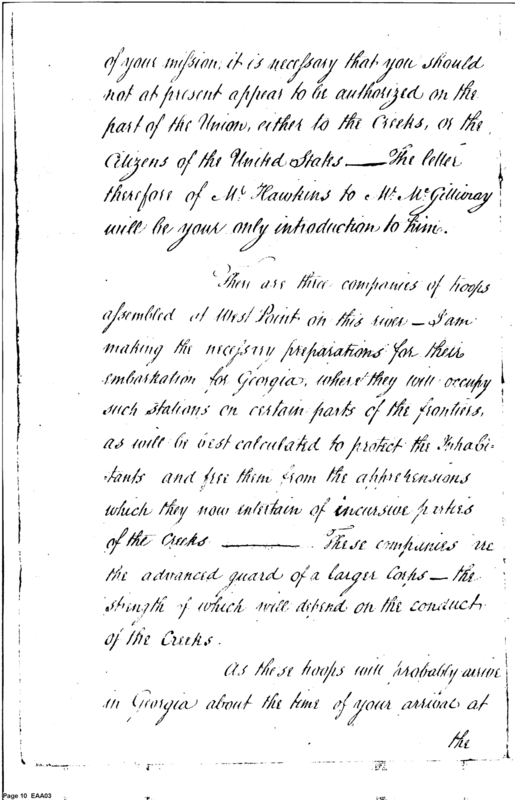 of your mission, it is necessary that you should
not at present appear to be authorized on the
part of the Union, either to the Creeks, or the
Citizens of the United States — The letter
therefore of Mr. Hawkins to Mr. McGillivray
will be your only introduction to him.
There are three companies of troops
assembled at West Point on this river — I am
making the necessary preparations for their
embarkation for Georgia, where they will occupy
such stations on certain parts of the frontiers,
as will be best calculated to protect the Inhabi-
tants and free them from the apprehensions
which they now entertain of incursive parties
of the Creeks — These companies are
the advanced guard of a larger Corps — the
strength of which will depend on the conduct
of the Creeks.
As these troops will probably arrive
in Georgia about the time of your arrival at
the
Page 10 EAA03